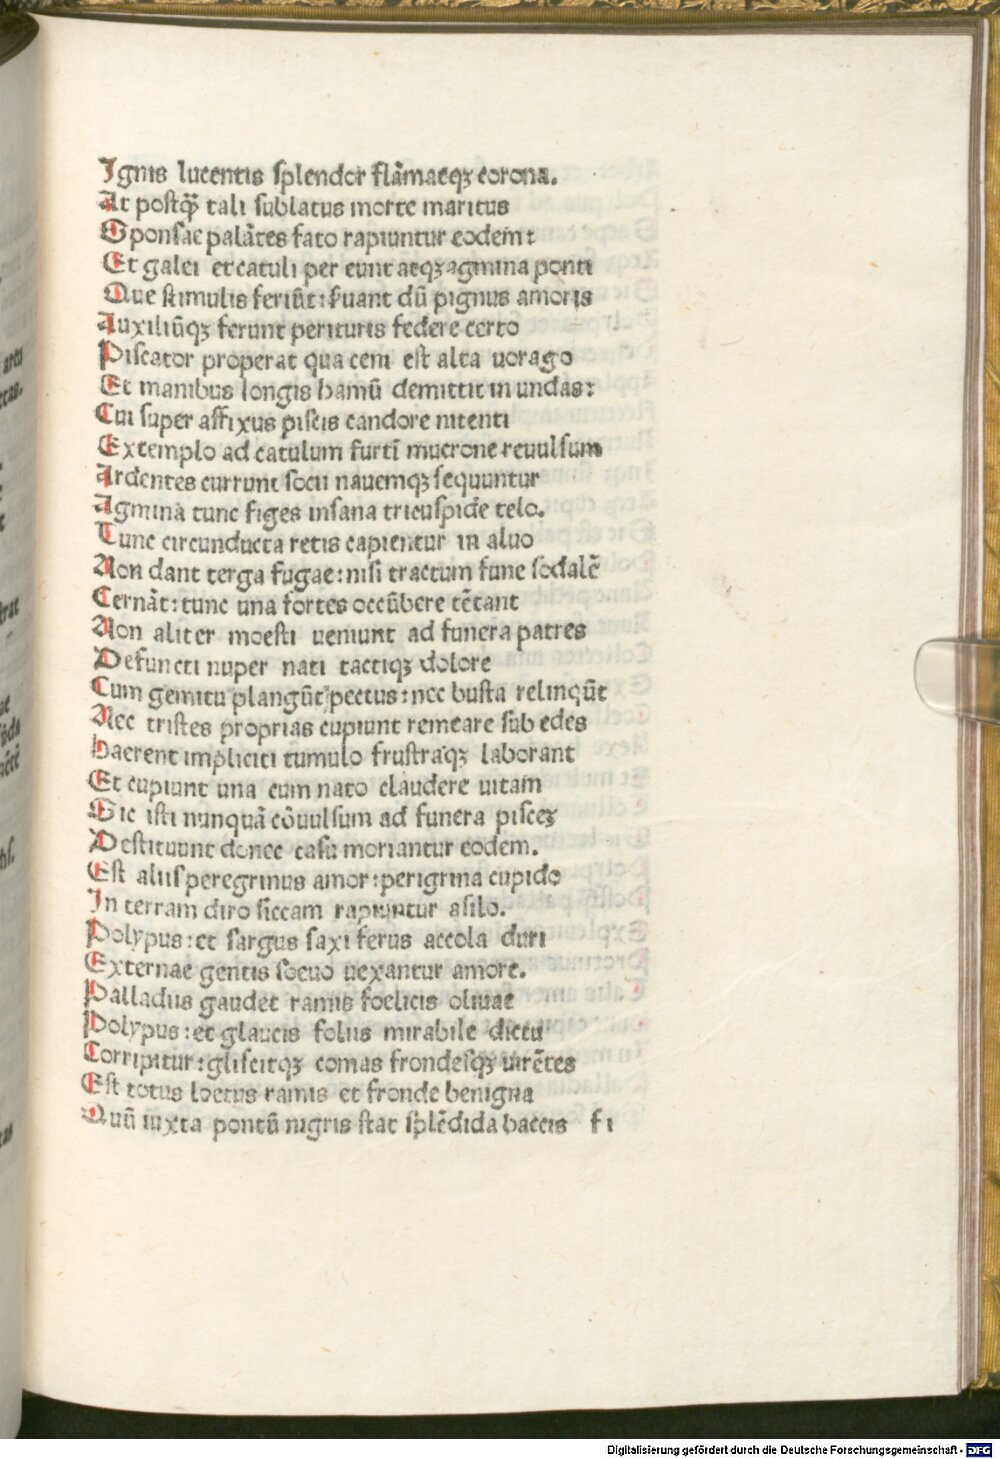 Ignis lucentis splendor flāmaeqꝫ corona.
At postꝙ̃ tali sublatus morte maritus
Sponsae palātes fato rapiuntur eodem:
Et galei et catuli per eunt atqꝫ agmina ponti
Que stimulis feriūt: fuant dū pignus amoris
Auxiliūqꝫ ferunt perituris federe certo
Piscator properat qua ceni est alta uorago
Et manibus longis hamū demittit in undas:
Cui super affixus piscis candore nitenti
Extemplo ad catulum furtī mucrone reuulsum
Ardentes currunt socii nauemqꝫ sequuntur
Agmina tunc figes insana tricuspide telo.
Tunc circunducta retis capientur in aluo
Non dant terga fugae: nisi tractum fune sodalē
Cernāt: tunc una fortes occūbere tētant
Non aliter moesti ueniunt ad funera patres
Defuncti nuper nati tactiqꝫ dolore
Cum gemitu plangūt pectus: nec busta relinqūt
Nec tristes proprias cupiunt remeare sub edes
haerent impliciti tumulo frustraqꝫ laborant
Et cupiunt una cum nato claudere uitam
Sic isti nunquā cōuulsum ad funera pisceꝫ
Destituunt donec casu moriantur eodem.
Est aliis peregrinus amor: perigrina cupido
In terram diro siccam rapiuntur asilo.
Polypus: et sargus saxi ferus accola duri
Externae gentis soeuo uexantur amore.
Palladiis gaudet ramis foelicis oliuae
Polypus: et glaucis foliis mirabile dictu
Corripitur: gliscitqꝫ comas frondesqꝫ uirētes
Est totus loetus ramis et fronde benigna
Quū iuxta pontū nigris stat splēdida baccis f i
Digitalisierung gefördert durch die Deutsche Forschungsgemeinschaft - DFG